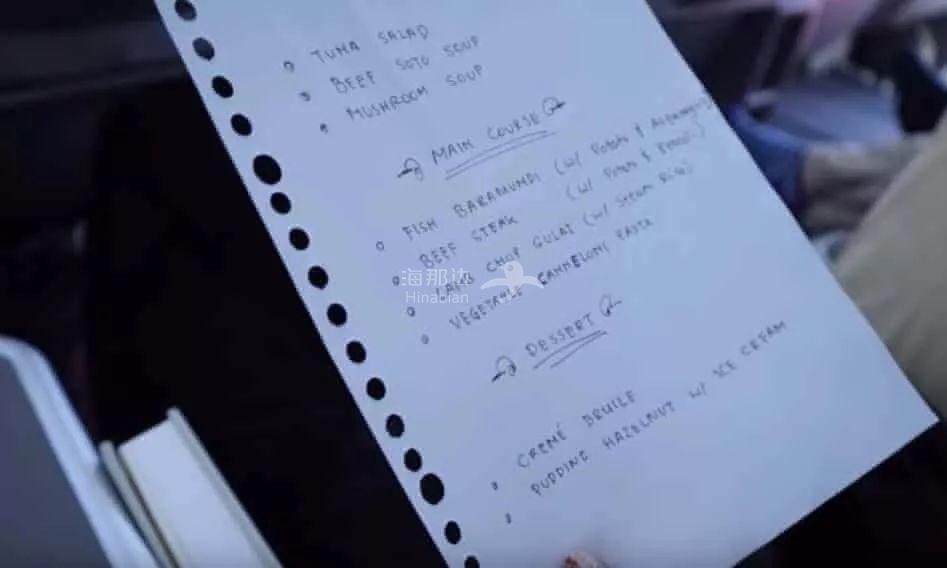 TUNA SALAD
BEEF SOTO SOUP
MUSHROOM SOUP
MAIN COURSE
FISH BARAMUNDI (W/ Potato & Asparagus)
BEEF STEAK (W/ Potato &
LAMB CHOP GULAI (W/ Steam Rice)
VEGETABLE CANNELONI PASTA
海那边
Hinabian
DESSERT
CREMÉ BRULE
PUDDING HAZELNUT W/ ICE CREAM